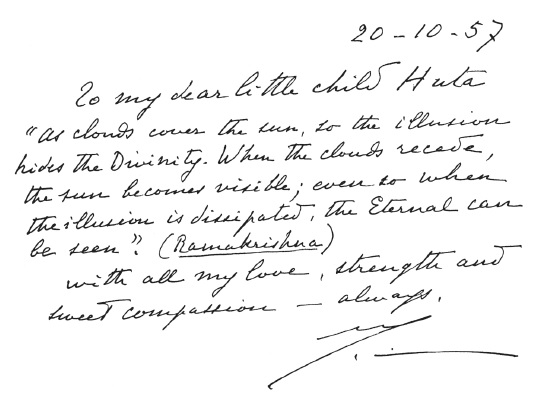 20-10-57
To my dear little child Huta
"As clouds cover the sun, so the illusion
hides the Divinity. When the clouds recede,
the sun becomes visible; even so when
the illusion is dissipated, the Eternal can
be seen". (Ramakrishna)
with all my love, strength and
sweet compassion — always.